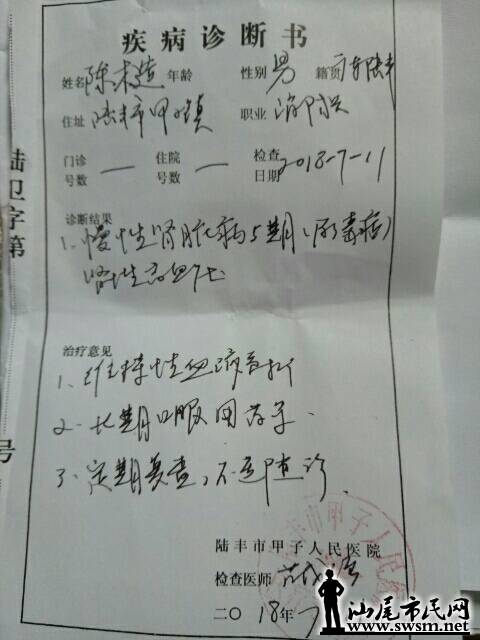 疾病诊断书
姓名 陈木造 年龄 性别 男 籍贯 广东陆丰
住址 陆丰市甲子镇 职业
门诊号数 — 住院号数 — 检查日期 2018-7-11
陆卫字第
号
诊断结果
1、慢性肾脏病5期(尿毒症)
肾性高血压
治疗意见
1、维持性血液透析
2、长期口服用药等.
3、定期复查,不适随诊.
陆丰市甲子人民医院
检查医师
二〇18年7
汕尾市民网
www.swsm.net